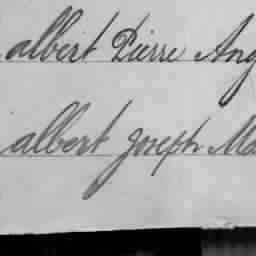 albert Pierre Ang
albert joseph Ma